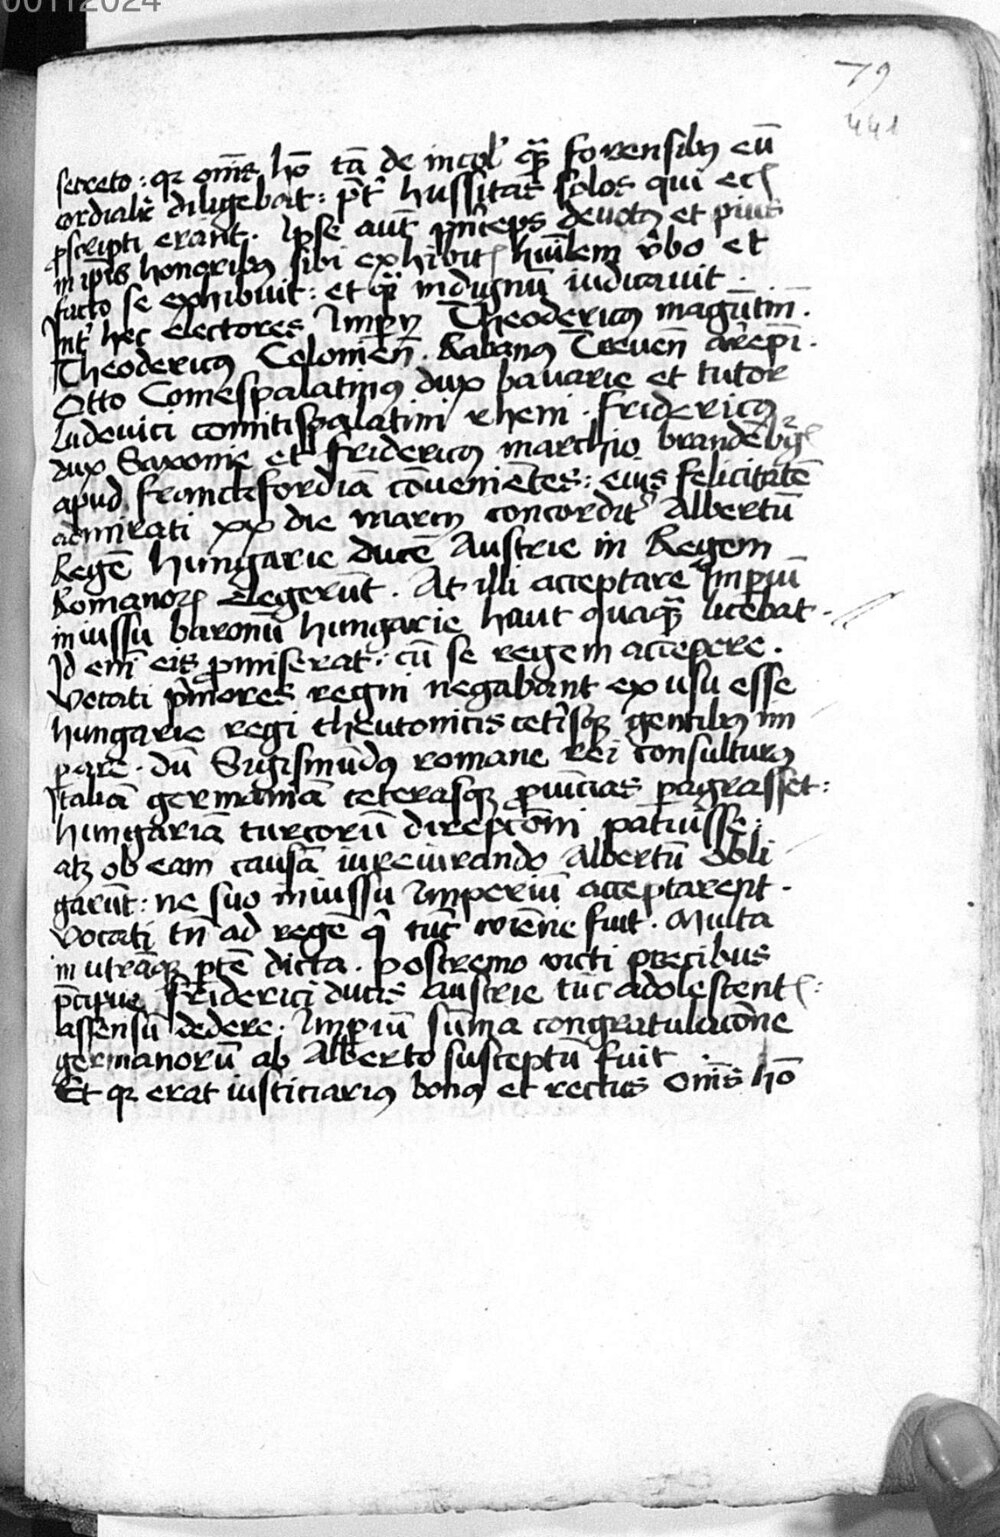 00112024
79
441
secreto : qr om̄is hō tā de incol' qā forensib9 eū
cordialr̄ diligebat : pt̄ hussitas solos qui
pscripti erant . Ipse aut̄ pn̄ceps deuot9 et pius
in ip̄is honorib9 sibi exhibit hūilem v̄bo et
facto se exhibuit : et indignū iudicauit .
Int̄ hec electores Imp̄ij Theodericus magūtin̄ .
Theodericus Colonien̄ . Rabanus Treueren̄ arep̄i .
Otto Comespalatinus dux bauarie et tutor
Ludouici comitispalatini rheni . fridericus
dux Saxonie et fridericus marchio brandēbg
apud franckfordiā cōuenientes : eius felicitatē
admirati xx die marcij concordit̄ Albertū
Regē hungarie ducē Austrie in Regem
Romanorꝝ elegerūt . At illi acceptare Imp̄iū
iniussu baronū hungarie haut quaqā licebat .
Id em̄ eis pmiserat : cū se regem accepere .
Vocati pm̄ores regni negabant ex usu esse
hungarie regi theutonicis cet̄isqꝫ gentib9 im
pare . dū Sigismūdus romane rei consulturus
Italiā germaniā ceterasqꝫ puincias pagrasset :
hungariā turcorū direpcōni patuisse :
atqꝫ ob eam causā iureiurando Albertū obli
garūt : ne suo iniussu Imperiū acceptaret .
Vocati tn̄ ad regē q̄ tūc wienne fuit . Multa
in utrāqꝫ ptē dicta . Postremo victi precibus
pc̄ipue friderici ducis austrie tūc adolescent :
assensū dedere . Imp̄iū sūma congratulacōne
germanorū ab Alberto susceptū fuit .
Et qr erat iusticiarius bonus et rectus om̄is hō